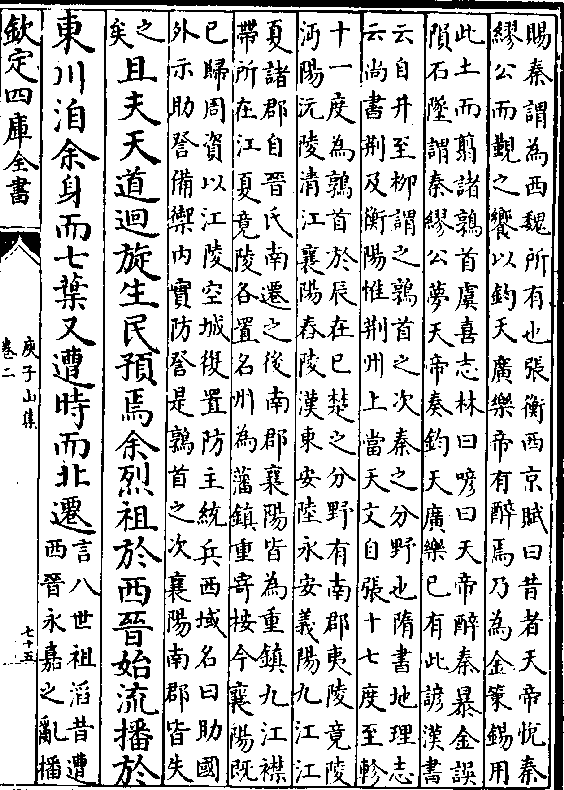 賜秦謂為西魏所有也張衡西京賦曰昔者天帝恱秦
繆公而覲之饗以鈞天廣樂帝有醉焉乃為金策錫用
此土而翦諸鶉首虞喜志林曰喭曰天帝醉秦暴金誤
隕石墜謂秦繆公夢天帝奏鈞天廣樂已有此諺漢書
云自井至柳謂之鶉首之次秦之分野也隋書地理志
云尚書荆及衡陽惟荆州上當天文自張十七度至軫
十一度為鶉首於辰在巳楚之分野有南郡夷陵竟陵
沔陽沅陵清江襄陽舂陵漢東安陸永安義陽九江江
夏諸郡自晉氏南遷之後南郡襄陽皆為重鎮九江襟
帶所在江夏竟陵各置名州為藩鎮重寄按今襄陽既
已歸周資以江陵空城復置防主統兵西域名曰助國
外示助詧備禦内實防詧是鶉首之次襄陽南郡皆失
之矣且夫天道迴旋生民預焉余烈祖於西晉始流播於
東川洎余身而七葉又遭時而北遷言八世祖滔昔遭
西晉永嘉之亂播
欽定四庫全書
庾子山集
卷二
七十五